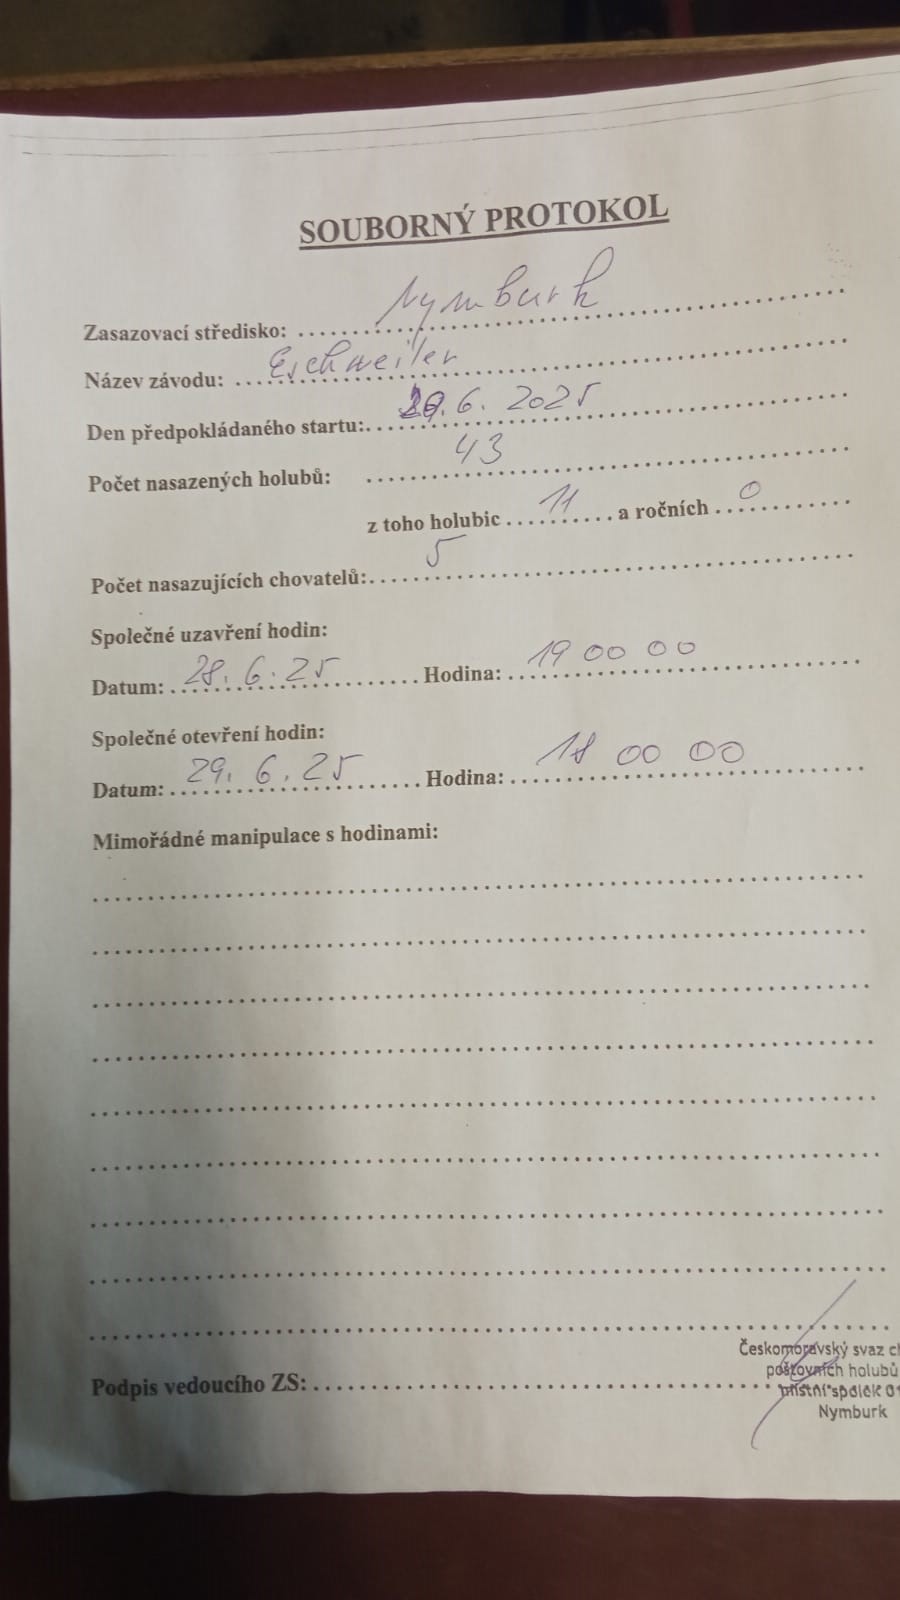 SOUBORNÝ PROTOKOL
Zasazovací středisko: Nymburk
Název závodu: Eschweiler
Den předpokládaného startu: 29.6.2025
Počet nasazených holubů: 43
z toho holubic 11 a ročních 0
Počet nasazujících chovatelů: 5
Společné uzavření hodin:
Datum: 28.6.25 Hodina: 19 00 00
Společné otevření hodin:
Datum: 29.6.25 Hodina: 18 00 00
Mimořádné manipulace s hodinami:
Českomoravský svaz c
poštovních holubů
Podpis vedoucího ZS: místní spolek 0
Nymburk